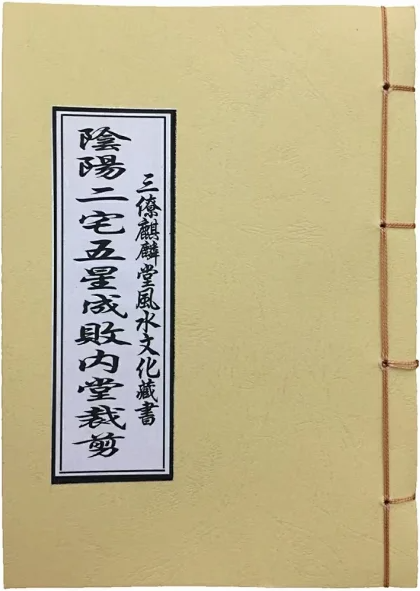 三僚麒麟堂風水文化藏書
陰陽二宅五星成敗内堂裁剪